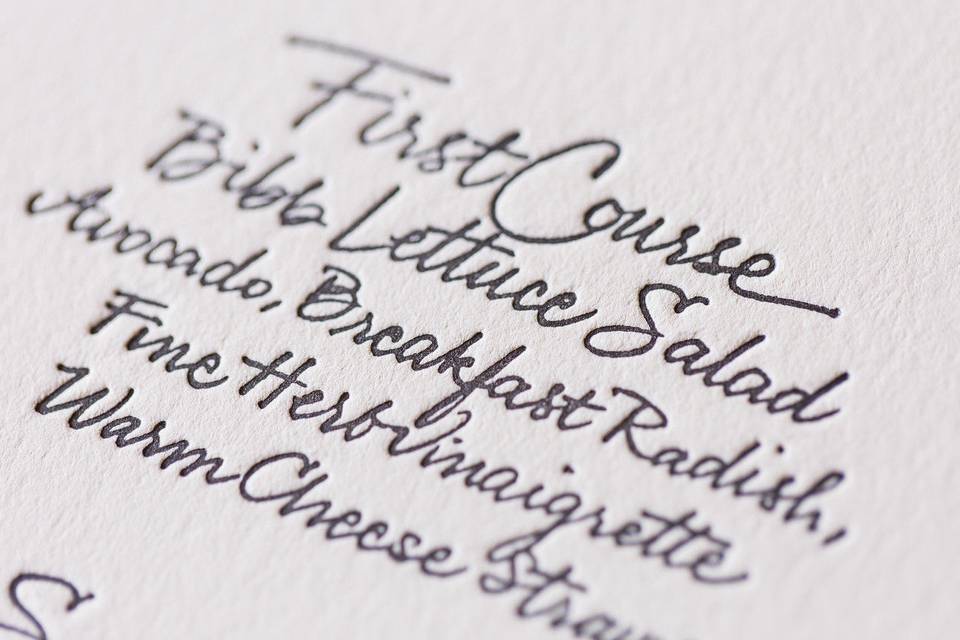 First Course
Bibb Lettuce Salad
Avocado, Breakfast Radish,
Fine Herb Vinaigrette
Warm Cheese
S